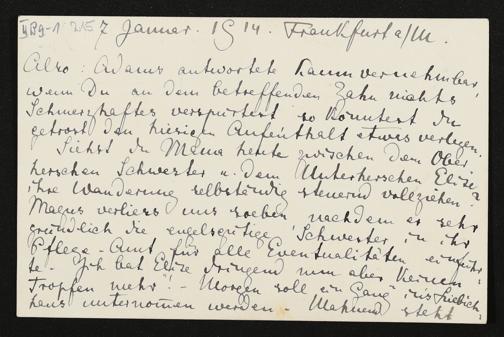 IIB9-1 215
7 Januar. 1914. Frankfurt a/M.
Also: Adams antwortete kaum vernehmbar,
wenn Du an dem betreffenden Zahn nichts
Schmerzhaftes verspürtest so könntest du
getrost den hiesigen Aufenthalt etwas verlegen.
Siehst du Mama heute zwischen dem Ober
herschen Schwester u. dem Unterherschen Elise
ihre Wanderung selbständig steuernd vollziehen?
Magus verliess uns soeben, nachdem er sehr
gründlich die engelseitige Schwester in ihr
Pflege-Amt für alle Eventualitäten einführ
te. Ich bat Elise dringend nun aber keinen
Tropfen mehr! - Morgen soll ein Gang in's
haus unternommen werden. Mahnend steht